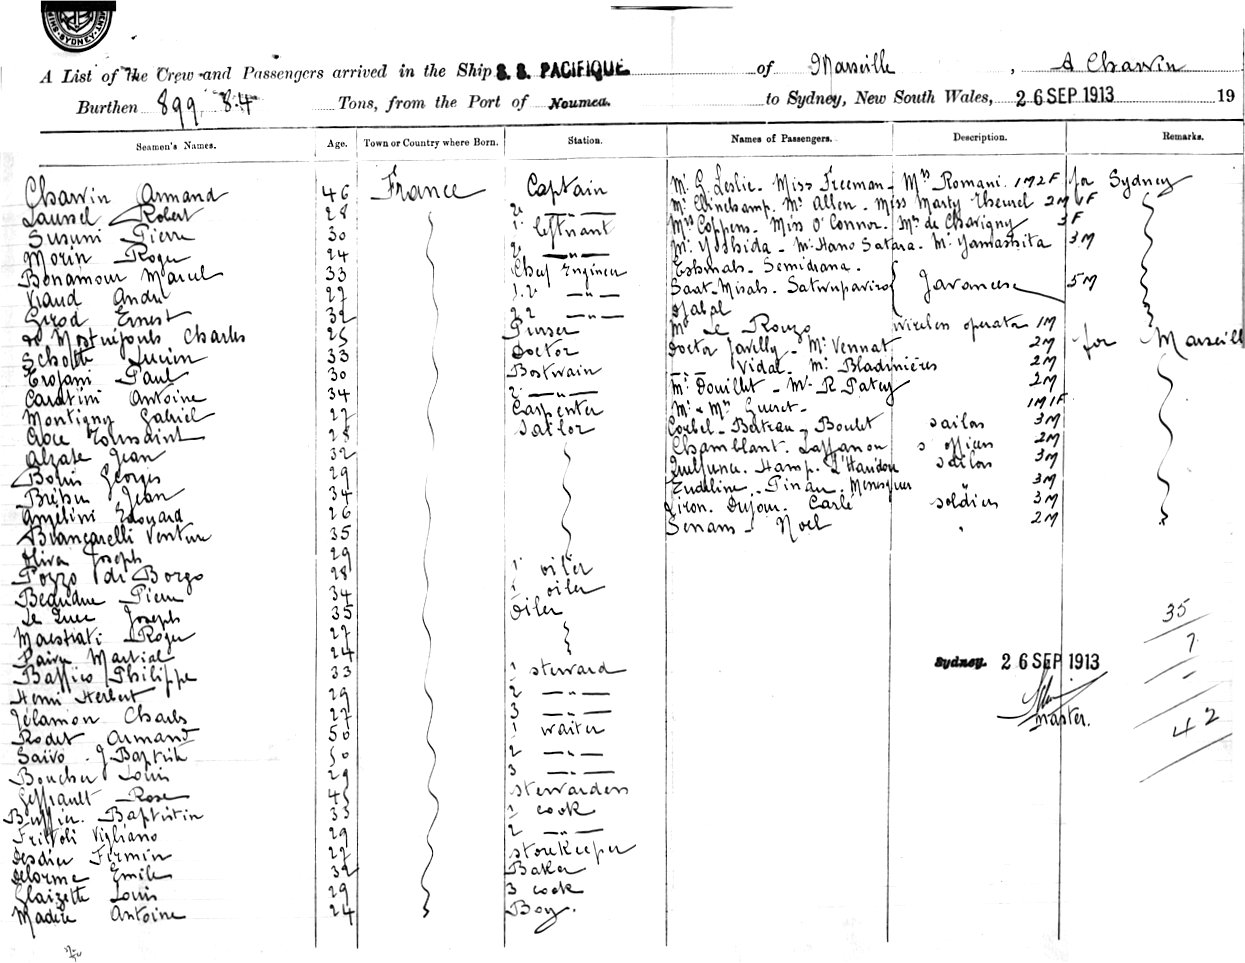 SYDNEY
A List of the Crew and Passengers arrived in the Ship S. S. PACIFIQUE of Marseille, A Chawin
Burthen 899. 84 Tons, from the Port of Noumea. to Sydney, New South Wales, 26 SEP 1913 19
Seamen's Names. Age. Town or Country where Born. Station. Names of Passengers. Description. Remarks.
Chawin Armand 46 France Captain Mr G. Leslie - Miss Freeman - Mrs Romani 1M2F for Sydney
Robert 28 2 —"— Mr Mr Allen - Miss Marty 2M 1F
Susini Pierre 30 1 leftnant Mrs Coppens - Miss O'Connor - Mme de Chavigny 3F
Morin Roger 24 2 —"— Mr Yoshida - Mr Hano Satara - Mr Yamashita 3M
Bonamour Marcel 33 Chef Engineer Semidrana.
Viaud André 27 1.2 —"— Saat-Misals - Javanese 5M
Girod Ernest 32 22 —"— Djalal
Charles 25 Purser Mr Le Rouzo wireless operator 1M
Lucien 33 Doctor Doctor Javilly - Mr Vennat 2M for Marseille
Trojani Paul 30 Bostwain Vidal - Mr Bladinières 2M
Caratini Antoine 34 2 —"— Mr Douillet - Mr R Patey 2M
Montigny Gabriel 27 Carpenter Mr & Mrs Guiret - 1M1F
Croce Toussaint 28 Sailor Corbel - Bateau - Boulet sailors 3M
Alzate Jean 32 Chamblant. Laffanon officers 2M
Georges 29 Hamp. sailors 3M
Jean 34 Pinau 3M
Angelini Edouard 26 Dujour. Carlé soldiers 3M
Brancarelli Venture 35 Senans - Noel " 2M
Oliva Joseph 29
Pozzo di Borgo 28 1 oiler
Pierre 34 1 oiler
Joseph 35 Oiler 35
Maestrati Roger 27 7
Martial 24 -
Baffico Philippe 33 1 steward Sydney. 26 SEP 1913
Henri Herbert 29 2 —"—
Jélamon Charles 27 3 —"— master.
Rodet Armand 50 1 waiter 42
Saïvo J Baptiste 50 2 —"—
Boucher Louis 29 3 —"—
Geffrault Rose 45 stewardess
Buffin. Baptistin 33 1 cook
Frittoli Vigliano 29 2 —"—
Desdier Firmin 27 storekeeper
Delorme Emile 32 Baker
Glaizette Louis 29 3 cook
Madère Antoine 24 Boy.